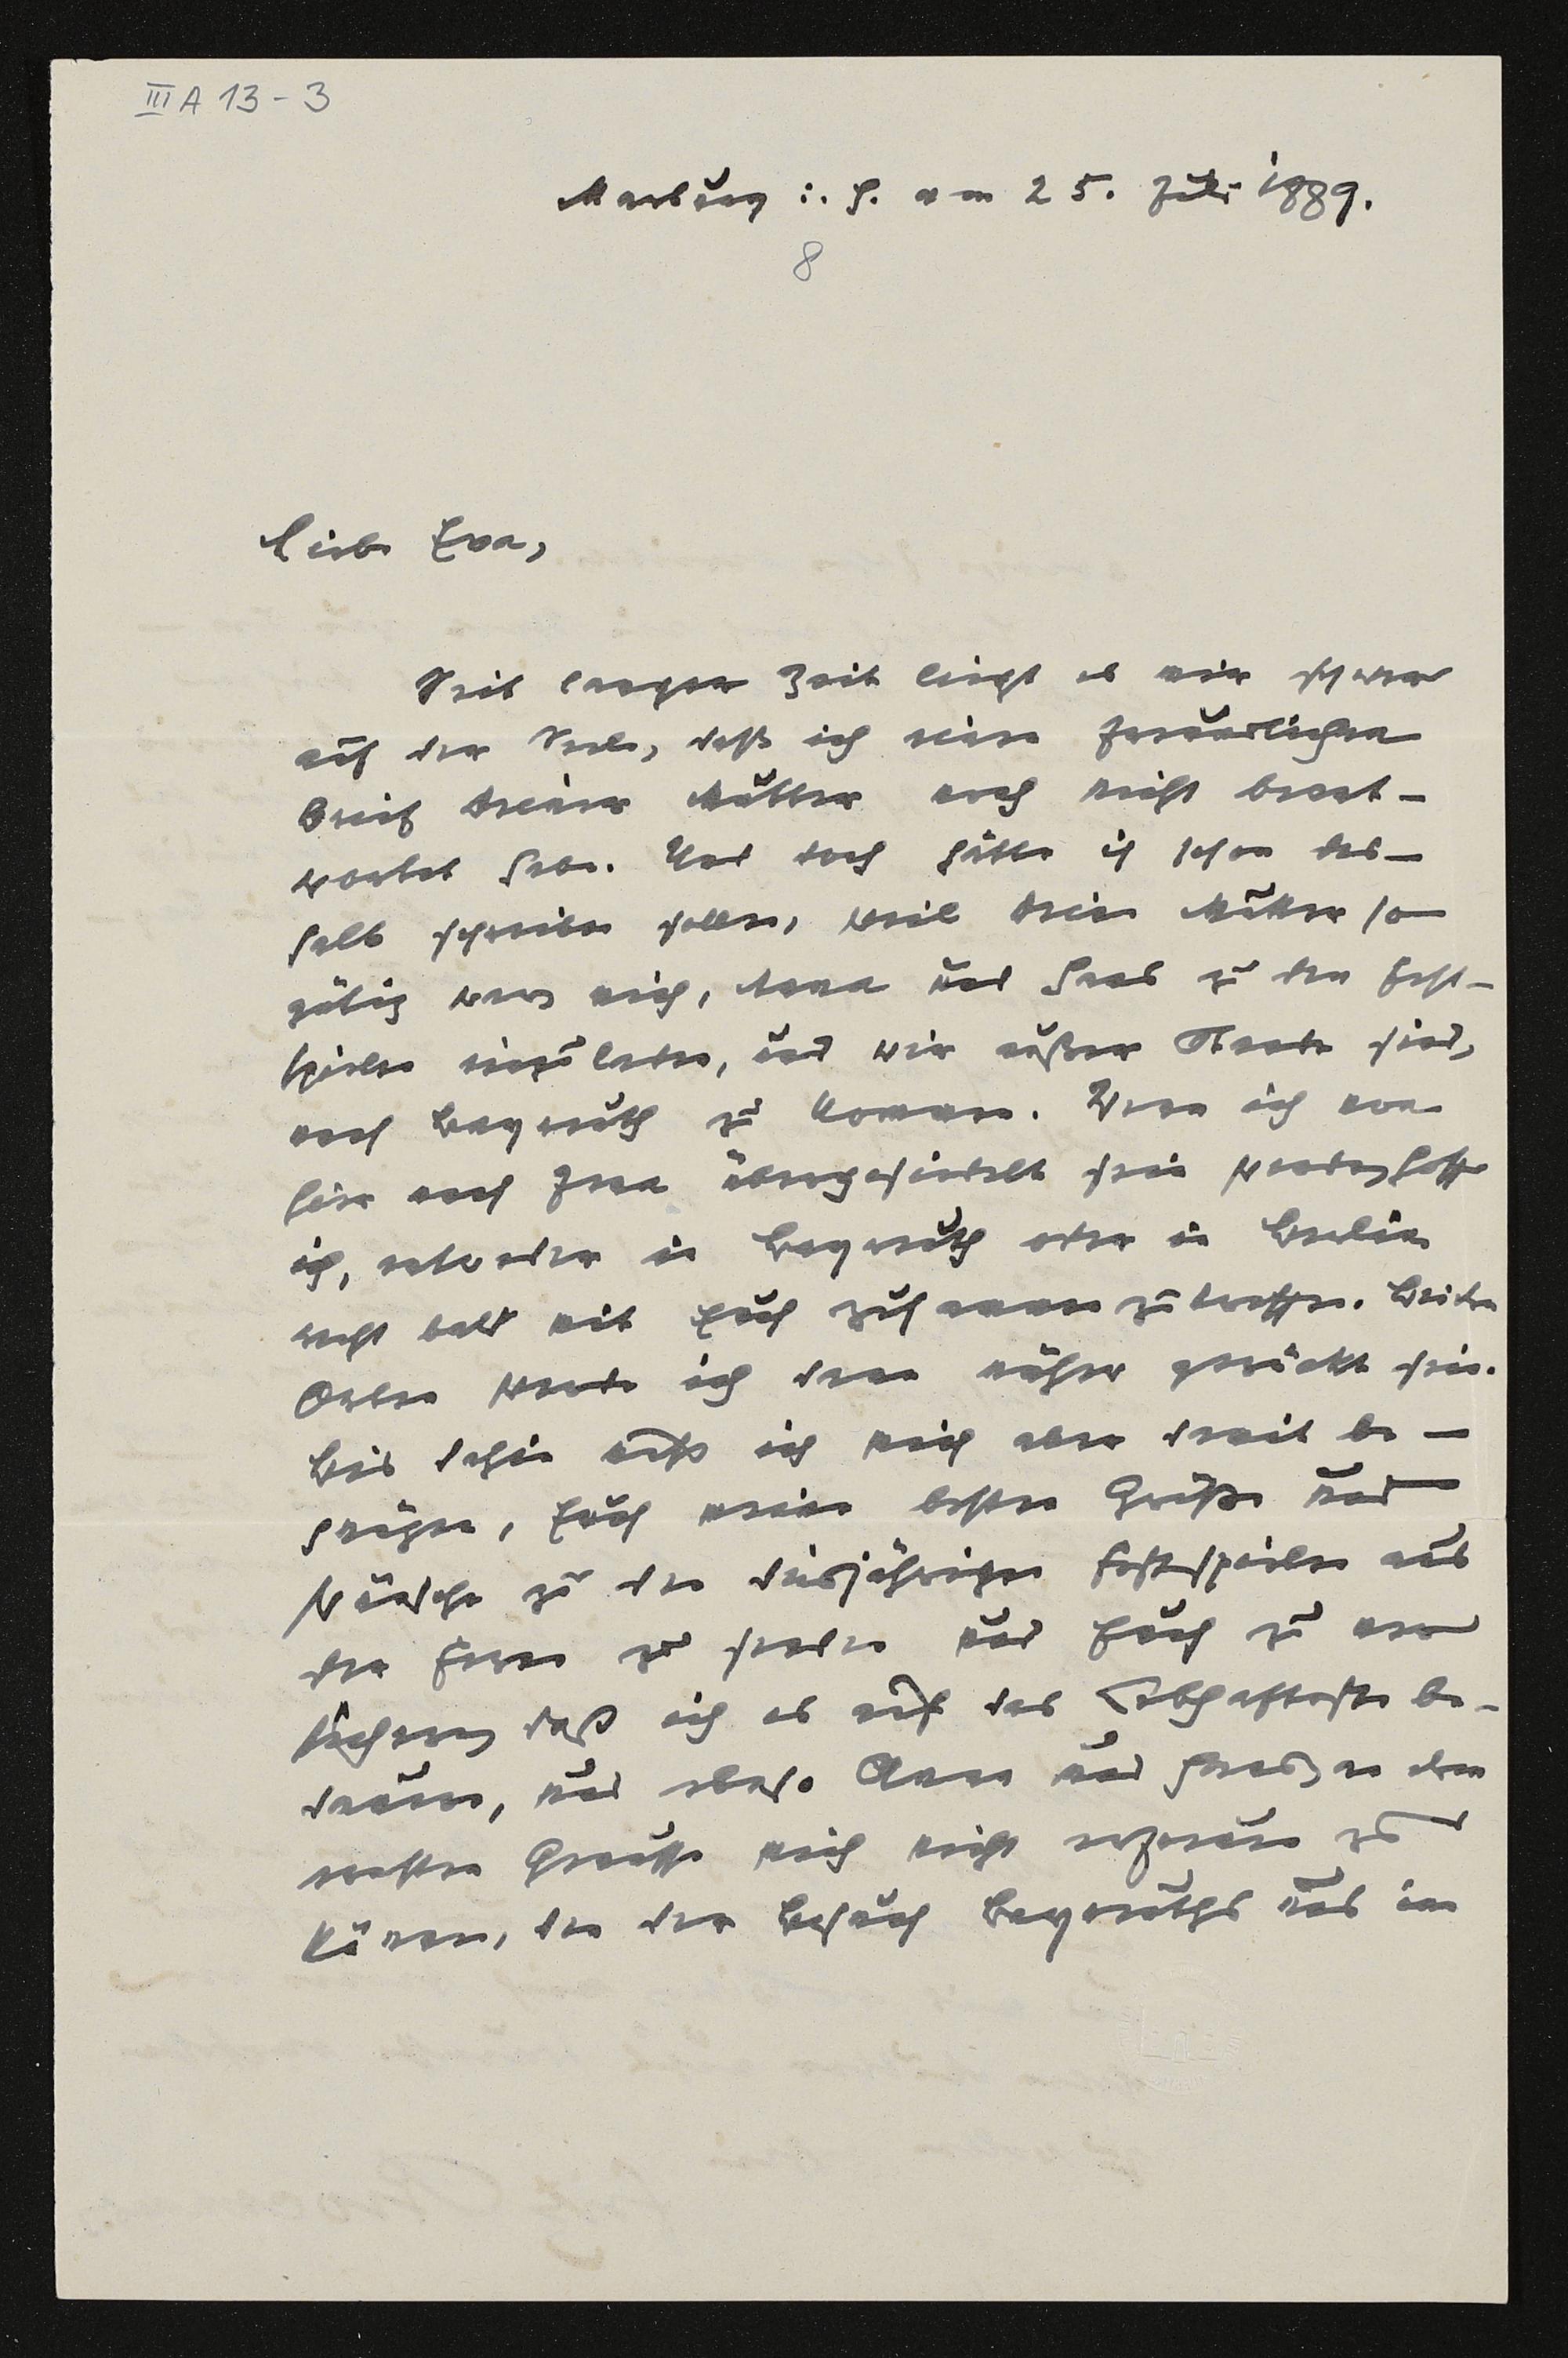 III A 13-3
Marburg i. H. am 25. Juli 1889.
8
Liebe Eva,
Seit langer Zeit liegt es mir schwer
auf der Seele, daß ich einen freundlichen
Brief Deiner Mutter noch nicht beant-
wortet habe. Und doch hätte ich schon des-
halb schreiben sollen, weil Deine Mutter so
gütig war mich, Anna und Hans zu den Fest-
spielen einzuladen, und wir außer Stande sind,
nach Bayreuth zu kommen. Wenn ich von
hier nach Jena übergesiedelt sein werde, hoffe
ich, entweder in Bayreuth oder in Berlin
recht bald mit Euch zusammenzutreffen. Beiden
Orten werde ich dann näher gerückt sein.
Bis dahin muß ich mich aber damit be-
gnügen, Euch meine besten Grüße und
Wünsche zu den diesjährigen Festspielen aus
der Ferne zu senden und Euch zu ver-
sichern, daß ich es auf das Lebhafteste be-
daure, und ebenso Anna und Hans, an dem
ersten Genusse mich nicht erfreuen zu
können, den der Besuch Bayreuths uns im